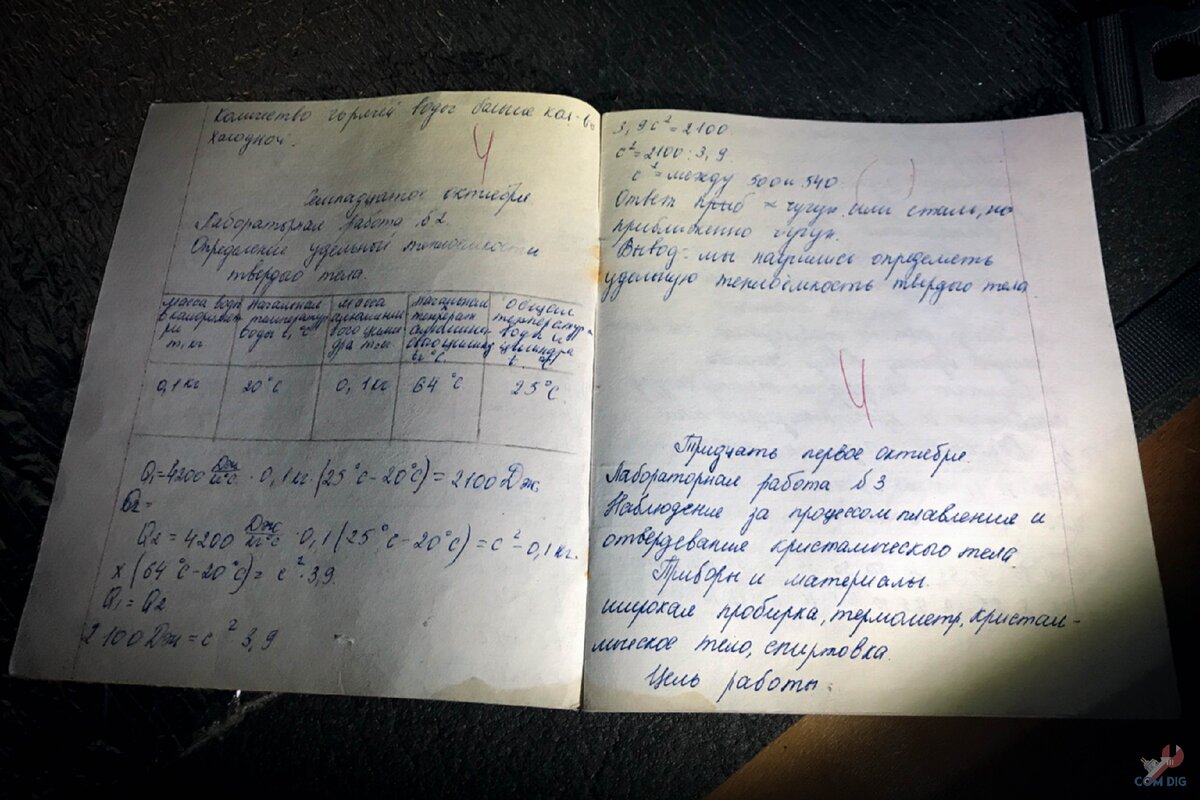 количество горячей воды больше кол-во
холодной.
4
Семнадцатое октября.
Лабораторная работа №2.
Определение удельной теплоёмкости
твердого тела.
масса воды в калориметре m, кг
Начальная температура воды t, °C
масса алюминиевого цилиндра m, кг
начальная t2 °C.
Общая температура воды и цилиндра t °C
0,1 кг 20°C 0,1 кг 64°C 25°C.
Q1=4200 Дж/кг°C · 0,1 кг·(25°C-20°C)=2100 Дж.
Q2=
Q2=4200 Дж/кг°C · 0,1 (25°C-20°C)=c2-0,1 кг.
x (64°C-20°C)= c2·3,9.
Q1=Q2
2100 Дж=c2 3,9
3,9c2=2100.
c2=2100:3,9.
c2=между 500 и 540.
Ответ приб = чугун или сталь, но
приближенно чугун.
Вывод:-мы научились определеть
удельную теплоёмкость твердого тела
4
Тридцать первое октября.
Лабораторная работа №3
Наблюдение за процессом плавления и
отвердевания кристалического тела.
Приборы и материалы.
широкая пробирка, термометр, кристал-
лическое тело, спиртовка.
Цель работы:
COM DIG